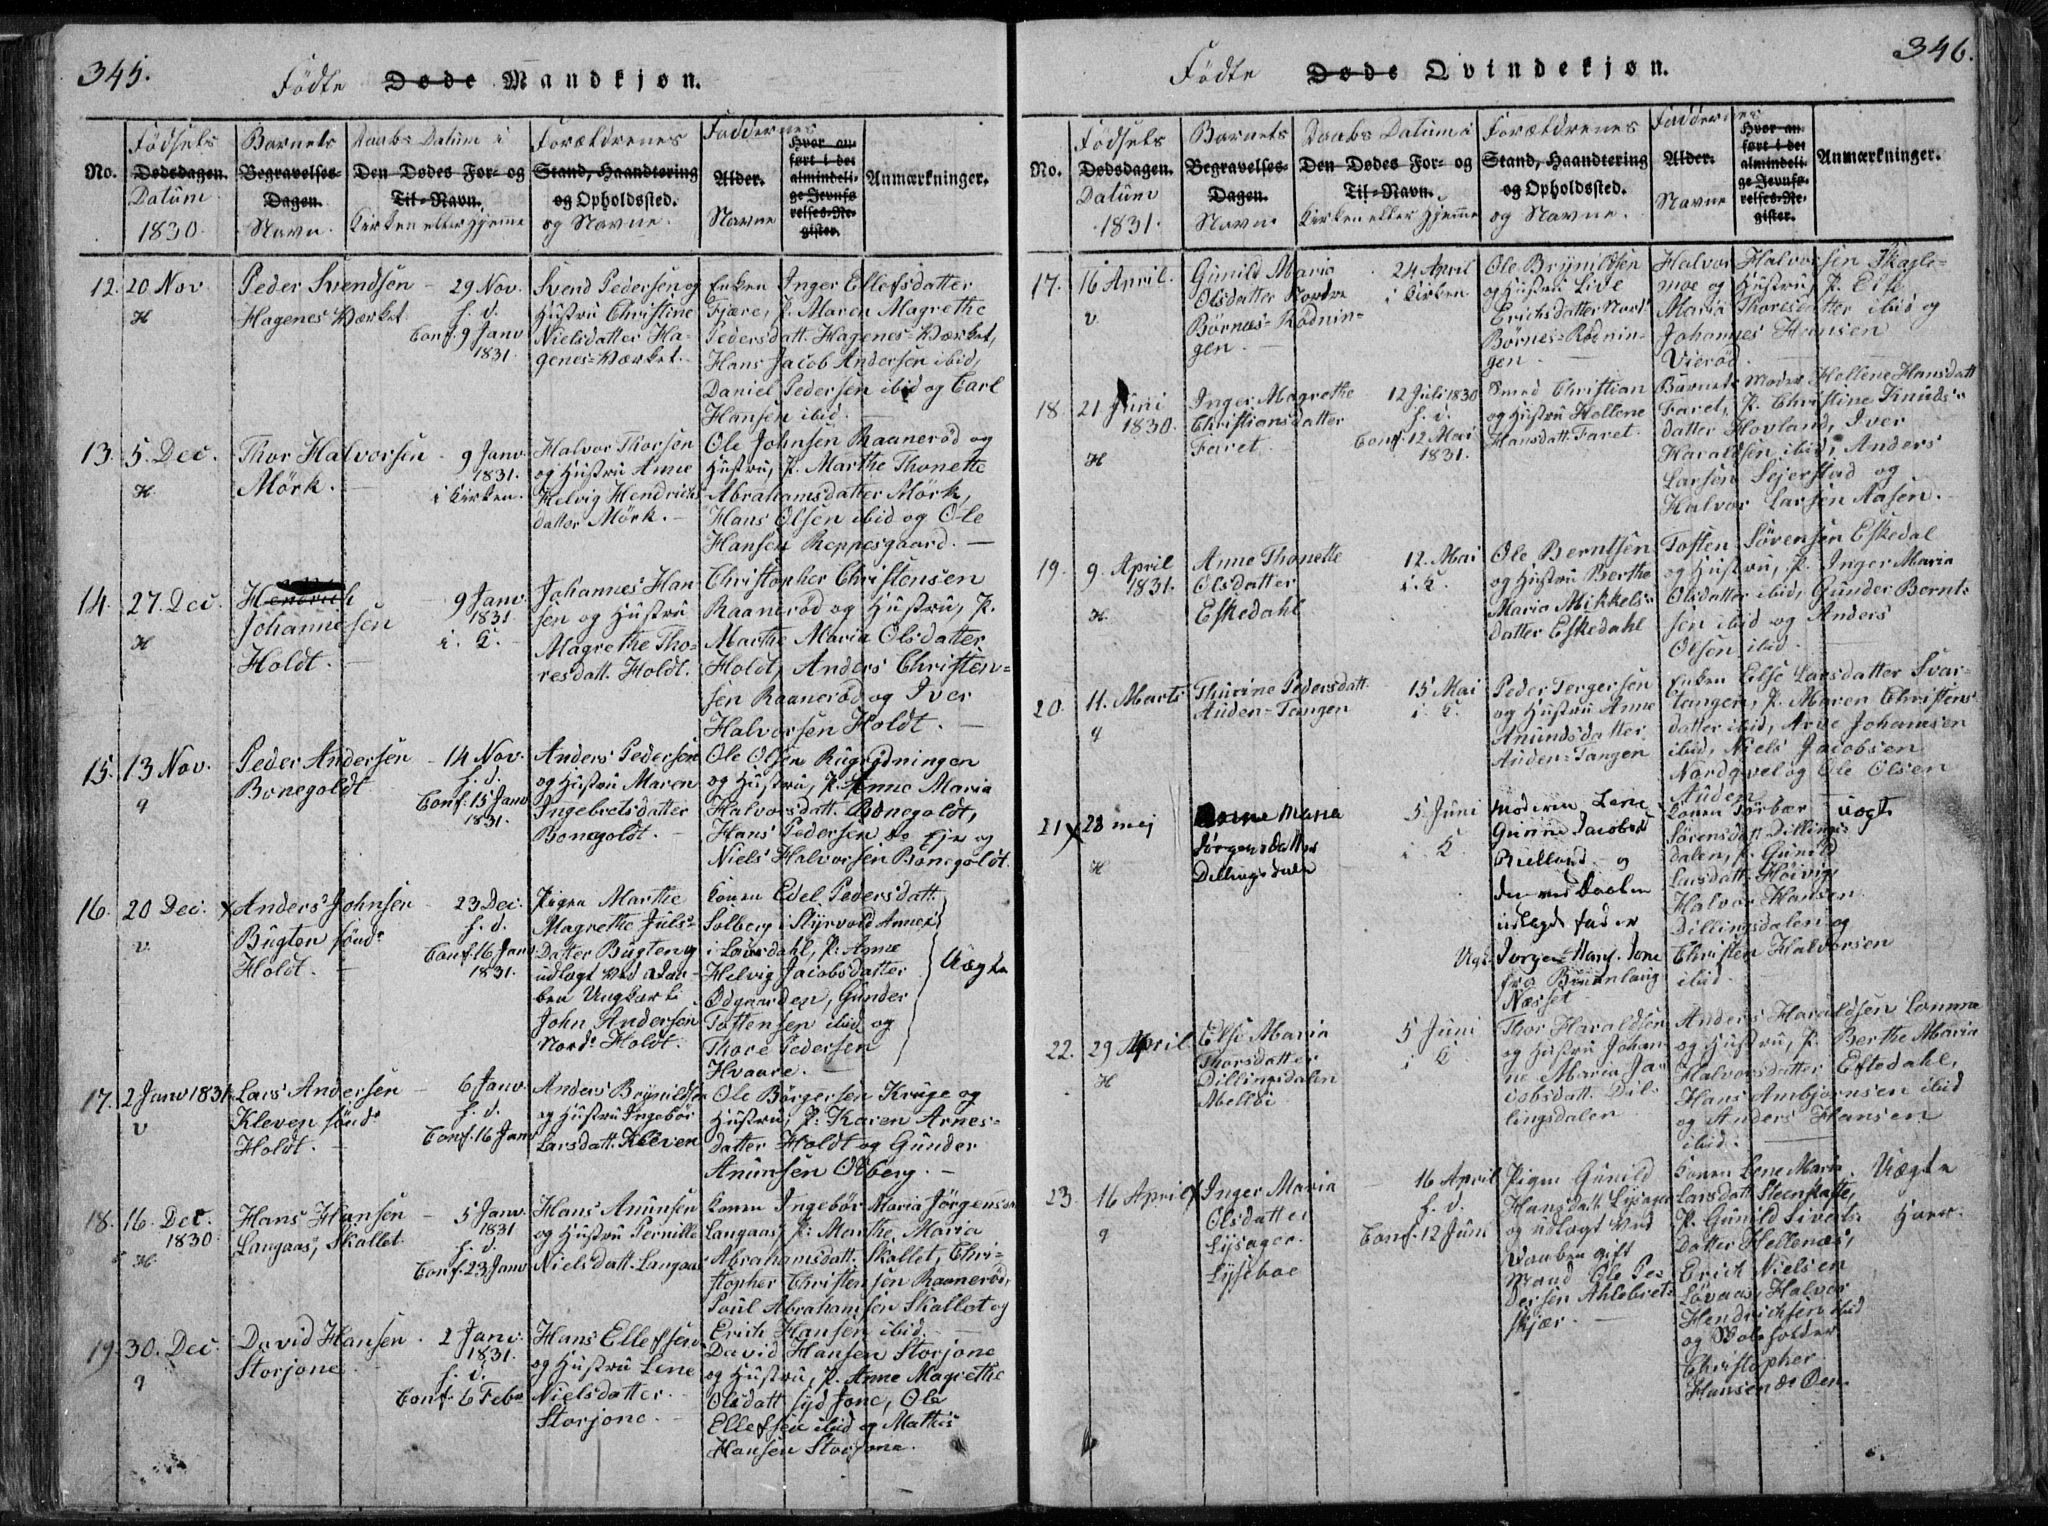 345.
Födte Døde Mandkjøn.
No.
Födsels
Dødsdagen.
Datum
1830.
Barnets
Begravelses-
Dagen.
Navn.
Daabs Datum i
Den Dødes For- og
Til-Navn.
Kirken eller Hjemme
Forældrenes
Stand, Haandtering
og Opholdssted.
og Navne.
Faddernes
Alder.
Navne
Hvor an-
ført i det
almindeli-
ge Jevnfø-
relses-Re-
gister.
Anmærkninger.
12. 20 Nov
H
Peder Svendsen
Hagenes Værket
29 Nov.
h. d.
Conf. 9 Janv
1831.
Svend Pedersen og
Hustru Christine
Nielsdatter Ha-
genes-Værket.
Enken Inger Ellefsdatter
Fjære, P. Maren Magrethe
Pedersdatt. Hagenes-Værket,
Hans Jacob Andersen ibid,
Daniel Pedersen ibid og Carl
Hansen ibid. —
13. 5. Dec.
H.
Thor Halvorsen
Mörk. —
9 Janv
1831.
i Kirken.
Halvor Thorsen
og Hustru Anne
Helvig Hendrichs
datter Mörk. —
Ole Johnsen Raanerød og
Hustru, P. Marthe Thonette
Abrahamsdatter Mörk,
Hans Olsen ibid og Ole
Hansen Reppesgaard. —
14. 27. Dec.
H
Hendrich
Johannesen
Holdt. —
9 Janv
1831
i. K.
Johannes Han-
sen og Hustru
Magrethe Tho-
resdatt. Holdt.
Christopher Christensen
Raanerød og Hustru, P.
Marthe Maria Olsdatter
Holdt, Anders Christen-
sen Raanerød og Iver
Halvorsen Holdt. —
15. 13 Nov.
q
Peder Andersen
Bonegoldt
14 Nov.
h. d.
Conf. 15 Janv
1831.
Anders Pedersen
og Hustru Maren
Ingebretsdatter
Bonegoldt. —
Ole Olsen Rugrydningen
og Hustru, P. Anne Maria
Halvorsdatt. Bonegoldt,
Hans Pedersen do Eje og
Niels Halvorsen Bonegoldt.
16. 20 Dec.
v.
x Anders Johnsen
Bugten sönd.
Holdt. —
23 Dec.
h. d.
Conf. 16 Janv
1831.
Pigen Marthe
Magrethe Juls-
Datter Bugten og
udlagt ved Daa-
ben Ungkarl
John Andersen
Nord. Holdt.
Konen Edel Pedersdatt.
Solberg i Styrvold Annex
i Laurdahl, P. Anne
Helvig Jacobsdatter
Odgaarden, Gunder
Tostensen ibid og
Thore Pedersen
Hvaare. —
Uægte
17. 2 Janv 1831
v
Lars Andersen
Kleven sönd.
Holdt. —
6 Janv.
h. d.
Conf. 16 Janv
Anders Brynildsen
og Hustru Ingebör
Larsdatt. Kleven
Ole Börgersen Kruge og
Hustru, P. Karen Arnes-
datter Holdt og Gunder
Anunsen Olberg. —
18. 16. Dec.
1830
H.
Hans Hansen
Langaas, Skallet
5 Janv.
1831
h. d.
Conf. 23 Janv
Hans Anunsen
og Hustru Pernille
Nielsdatt. Langaas
Konen Ingebör Maria Jörgensen
Langaas, P. Marthe Maria
Abrahamsdatt. Skallet, Chri-
stopher Christensen Raanerød,
Poul Abrahamsen Skallet og
Erich Hansen ibid. —
19. 30. Dec.
q
David Hansen
Storjone
2 Janv.
1831.
h. d.
Conf. 6 Febr
Hans Ellefsen
og Hustru Lene
Nielsdatter
Storjone. —
David Hansen Storjone
og Hustru, P. Anne Magrethe
Olsdatt Syd Jone, Ole
Ellefsen ibid og Mathis
Hansen Storjone.
346.
Födte Døde Qvindekjøn.
No.
Födsels
Dødsdagen.
Datum
1831.
Barnets
Begravelses-
Dagen.
Navn
Daabs Datum i
Den Dødes For- og
Til-Navn.
Kirken eller Hjemme
Forældrenes
Stand, Haandtering
og Opholdssted.
og Navne.
Faddernes
Alder.
Navne
Hvor an-
ført i det
almindeli-
ge Jevnfø-
relses-Re-
gister.
Anmærkninger.
17. 16 April.
v
Gunild Maria
Olsdatter Nordre
Börnes-Rødnin-
gen. —
24 April
i Kirken
Ole Brynildsen
og Hustru Live
Erichsdatter Nord.
Börnes-Rødnin-
gen. —
Halvor Halvorsen Skagle-
moe og Hustru, P. Else
Maria Thoresdatter ibid og
Johannes Hansen
Vierød.
18. 21 Juni
1830.
H
Inger Magrethe
Christiansdatter
Faret.
12 Juli 1830
h. d.
Conf. 12 Mai
1831.
Smed Christian
og Hustru Hellene
Hansdatt. Faret.
Barnets Moder Hellene Hansdatt
Faret, P. Christine Knuds-
datter Hovland, Iver
Haraldsen ibid, Anders
Larsen Sejerstad og
Halvor Larsen Aasen.
19. 9. April
1831.
H.
Anne Thonette
Olsdatter
Eskedahl
12. Mai
i. K.
Ole Berntsen
og Hustru Berthe
Maria Mikkels-
datter Eskedahl
Tosten Sörensen Eskedal
og Hustru, P. Inger Maria
Olsdatter ibid, Gunder Bernt-
sen ibid og Anders
Olsen ibid.
20. 11. Marts
q
Thurine Pedersdatt.
Auden-Tangen
15 Mai
i. K.
Peder Tergersen
og Hustru Anne
Anundsdatter
Auden-Tangen
Enken Else Larsdatter Svar-
tangen, P. Maren Christens
datter ibid, Arve Johansen
ibid, Niels Jacobsen
Nordqvel og Ole Olsen
Auden
21 x 28 mej
H
Anne Maria
Jörgensdatter
Dillingsdalen
5 Juni
i. K.
Moderen Lene
Gurine Jacobsd
Rielland og
den ved Daaben
udlagde fader
Ugt. Jörgen Hans. Tone
fra Brunlaug
Næsset
Konen Torbær
Sörensdatt Dillings-
dalen, P. Gunild
Larsdatt. Hoivig,
Halvor Hansen
Dillingsdalen og
Christen Halvorsen
ibid.
uægte
22. 29 April
H
Else Maria
Thorsdatter
Dillingsdalen
Mellbÿe
5 Juni
i. K.
Thor Haraldsen
og Hustru Johan
ne Maria Ja-
cobsdatt. Dil-
lingsdalen
Anders Haraldsen Lomma
og Hustru, P. Berthe Maria
Halvorsdatter Eftedahl,
Hans Ambjörnsen ibid
og Anders Hansen
ibid. —
23. 16 April x
q
Inger Maria
Olsdatter
Lysager.
Lysseboe
16 April
h. d.
Conf. 12 Juni
Pigen Gunild
Hansdatt. Lysager
og udlagt ved
Daaben gift
Mand Ole Pe-
dersen Ahlebret-
skjær. —
Konen Lene Maria
Larsdatt Steenstøtte,
P. Gunild Siverts-
datter Hellenæs,
Erich Nielsen
Lövaas, Halvor
Hendrichsen ibid
og
Christopher
Hansen do Oen.
Uægte
Horer.